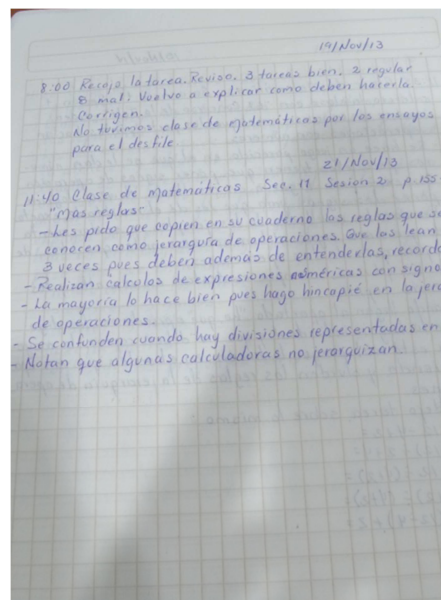 19/Nov/13
8:00 Recojo la tarea. Reviso. 3 tareas bien. 2 regular
8 mal. Vuelvo a explicar como deben hacerla.
Corrigen.
No tuvimos clase de matemáticas por los ensayos
para el desfile
21/Nov/13
11:40 Clase de matemáticas Sec. 11 Sesion 2 p. 155
"mas reglas"
- Les pido que copien en su cuaderno las reglas que se
conocen como jerarquía de operaciones. Que las lean
3 veces pues deben además de entenderlas, recorda
- Realizan calculos de expresiones numéricas con signo
- La mayoría lo hace bien pues hago hincapié en la jera
de operaciones.
- Se confunden cuando hay divisiones representadas en
- Notan que algunas calculadoras no jerarquizan.